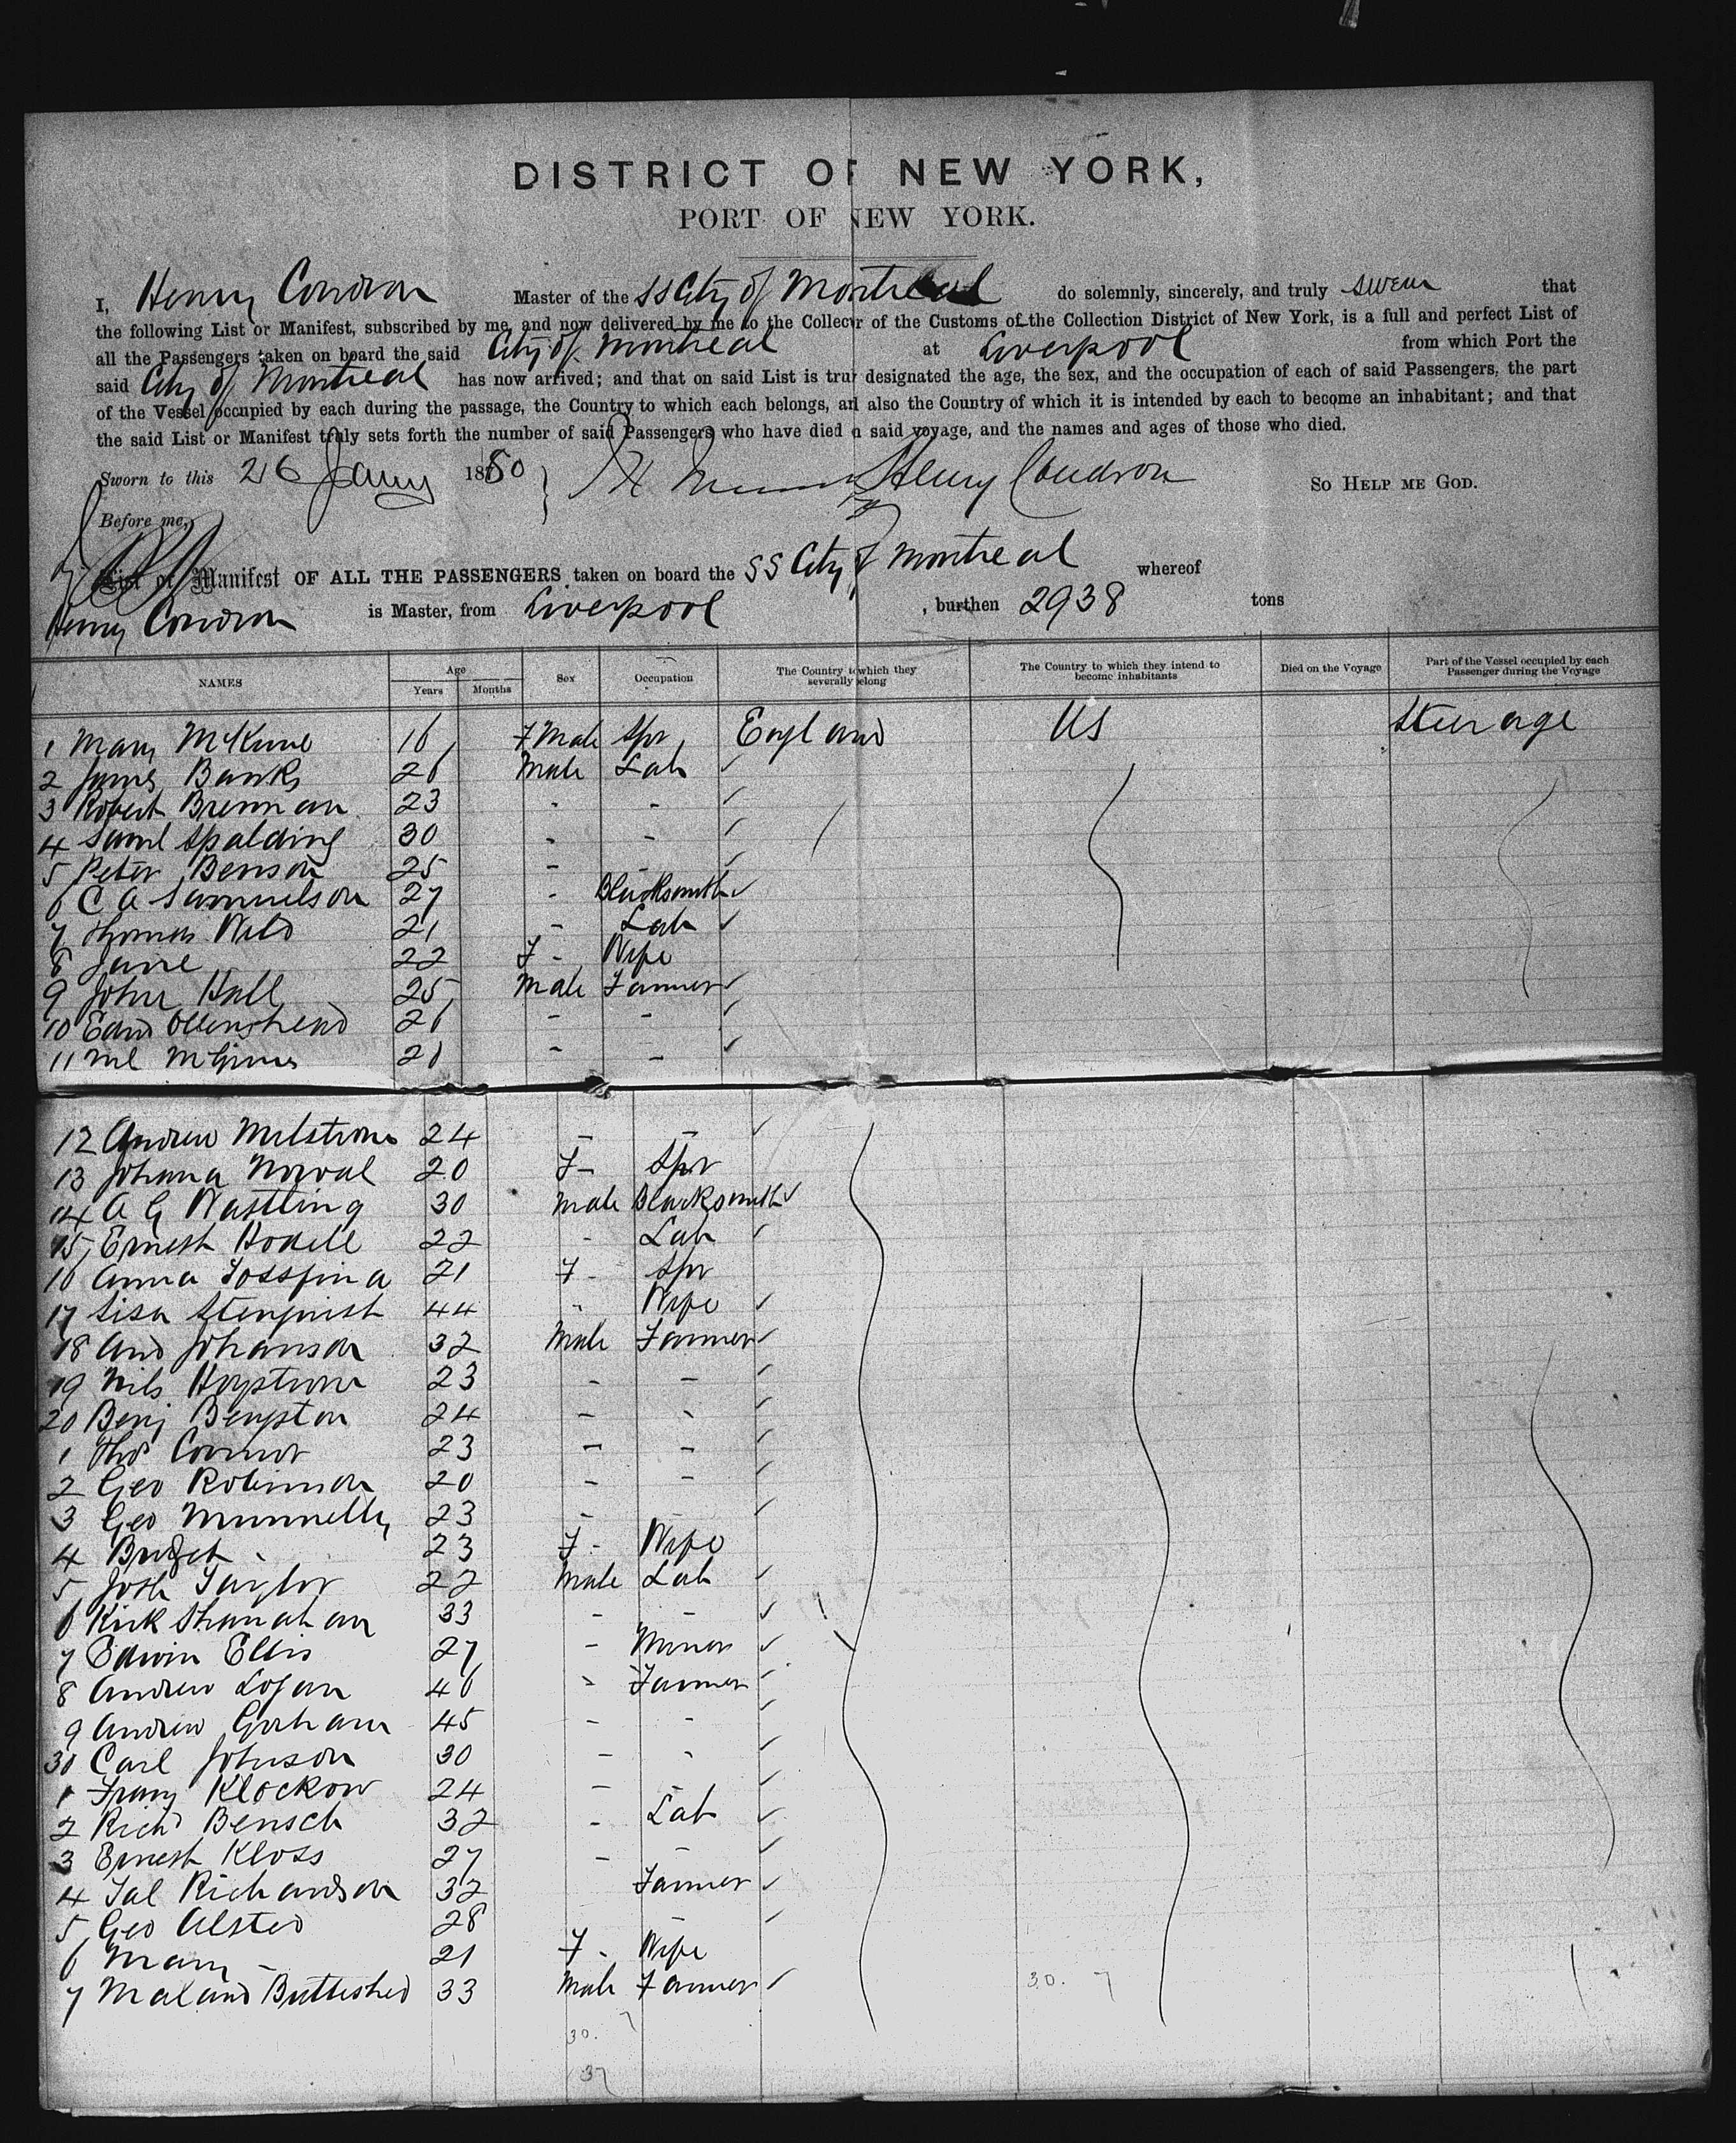 DISTRICT OF NEW YORK,
PORT OF NEW YORK.
I, Henry Condron Master of the SS City of Montreal do solemnly, sincerely, and truly swear that
the following List or Manifest, subscribed by me, and now delivered by me to the Collector of the Customs of the Collection District of New York, is a full and perfect List of
all the Passengers taken on board the said City of Montreal at Liverpool from which Port the
said City of Montreal has now arrived; and that on said List is truly designated the age, the sex, and the occupation of each of said Passengers, the part
of the Vessel occupied by each during the passage, the Country to which each belongs, and also the Country of which it is intended by each to become an inhabitant; and that
the said List or Manifest truly sets forth the number of said Passengers who have died on said voyage, and the names and ages of those who died.
Sworn to this 26 Jany 1880 Henry Condron So Help me God.
Before me,
List or Manifest OF ALL THE PASSENGERS taken on board the SS City of Montreal whereof
Henry Condron is Master, from Liverpool , burthen 2938 tons
NAMES Age Years Months Sex Occupation The Country to which they severally belong The Country to which they intend to become inhabitants Died on the Voyage Part of the Vessel occupied by each Passenger during the Voyage
1 Mary McKune 16 F Male Spr England US Steerage
2 James Banks 26 Male Lab
3 Robert Brennan 23 - -
4 Saml Spalding 30 - -
5 Peter Benson 25 - -
6 C A Samuelson 27 - Blacksmith
7 Thomas Wild 21 - Lab
8 Jane 22 F - Wife
9 John Hall 25 Male Farmer
10 Edwd Ollenshead 26 - -
11 McGinnis - -
12 Andrew Milstrom 24 - -
13 Johana Norval 20 F - Spr
14 A G Wastling 30 Male Blacksmith
15 Ernest 22 - Lab
16 Anna Josspina 21 F - Spr
17 Lisa Stenquist 44 " Wife
18 And Johanson 32 Male Farmer
19 Nils Hogstrom 23 - -
20 Benj Bengston 24 - -
1 Thos Connor 23 - -
2 Geo Robinson 20 - -
3 Geo Munnelly 23 - -
4 Bridget - 23 F - Wife
5 Josh Taylor 22 Male Lab
6 Kirk Shanahan 33 - -
7 Edwin Ellis 27 - Miner
8 Andrew Logan 46 - Farmer
9 Andrew Graham 45 - -
30 Carl Johnson 30 - -
1 Franz Klockow 24 - -
2 Richd Bensch 32 - Lab
3 Ernest Kloss 27 - -
4 Richardson 32 Farmer
5 Geo Alsted 28 -
6 Mary - 21 F - Wife
7 Buttished 33 Male Farmer
30. 7
30. 7
37